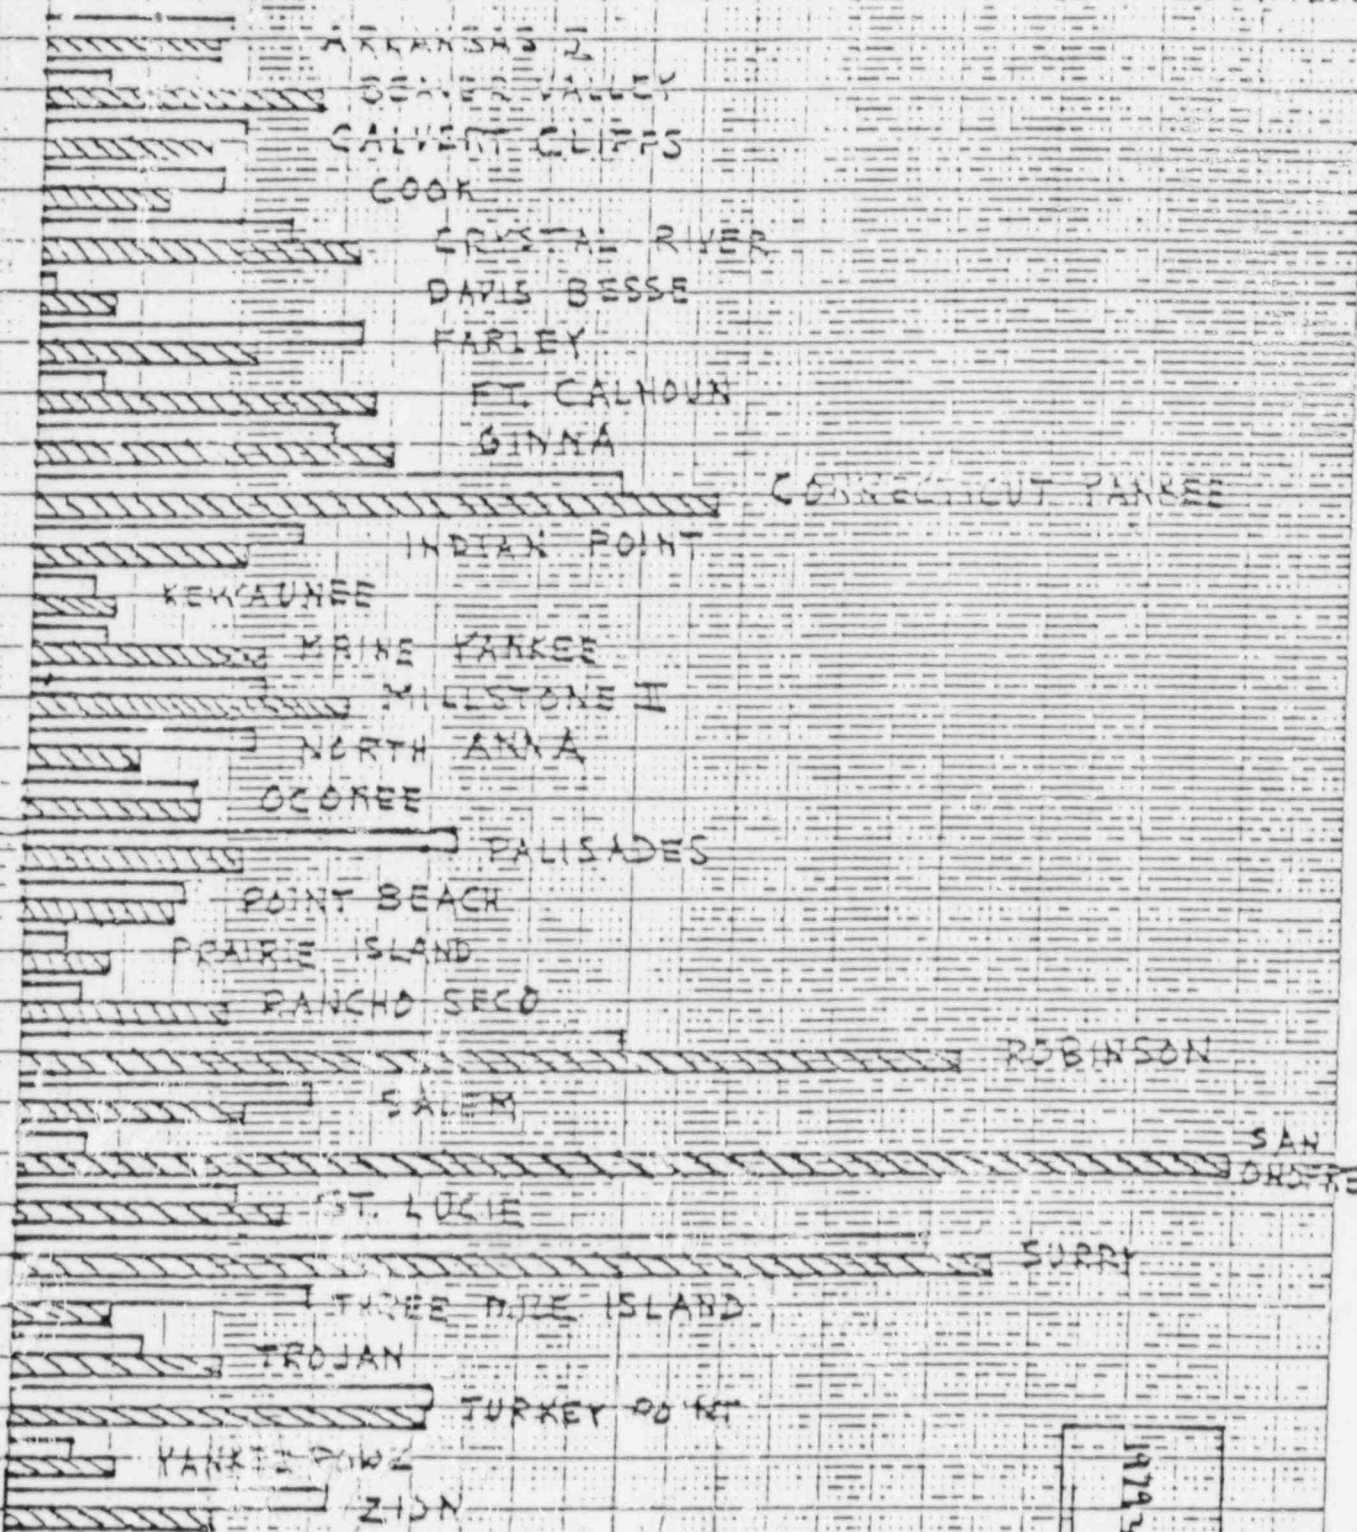 ARKANSAS 2
BEAVER VALLEY
CALVERT CLIFFS
COOK
CRYSTAL RIVER
DAVIS BESSE
FARLEY
FT. CALHOUN
GINNA
CONNECTICUT YANKEE
INDIAN POINT
KEWAUNEE
MAINE YANKEE
MILLSTONE II
NORTH ANNA
OCONEE
PALISADES
POINT BEACH
PRAIRIE ISLAND
RANCHO SECO
ROBINSON
SALEM
SAN
ONOFRE
ST. LUCIE
SURRY
THREE MILE ISLAND
TROJAN
TURKEY POINT
YANKEE ROWE
ZION
1979